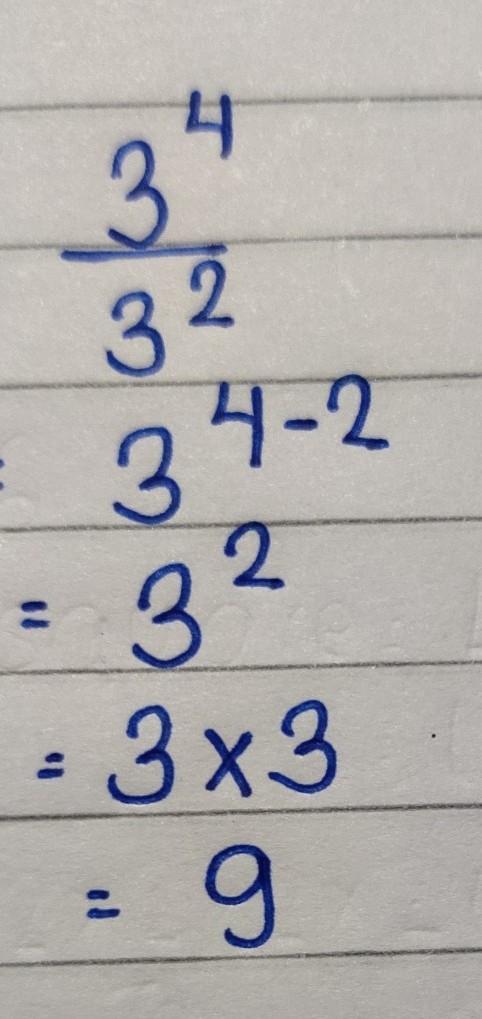 3⁴
3²
= 3⁴⁻²
= 3²
= 3 × 3
= 9